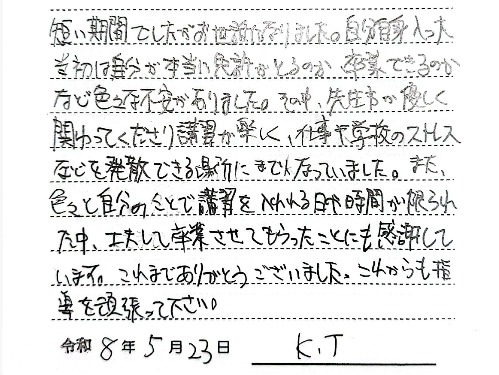 短い期間でしたがお世話になりました。自分自身入った
当初は自分が本当に免許がとるのか、卒業できるのか
など色々な不安がありました。その中、先生方が優しく
関わってくださり講習が楽しく、仕事や学校のストレス
などを発散できる場所にまでなっていました。また、
色々と自分のことで講習を入れれる日や時間が限られ
た中、工夫して卒業させてもらったことにも感謝して
います。これまでありがとうございました。これからも指
導を頑張って下さい。
令和 8年 5月 23日 K.T